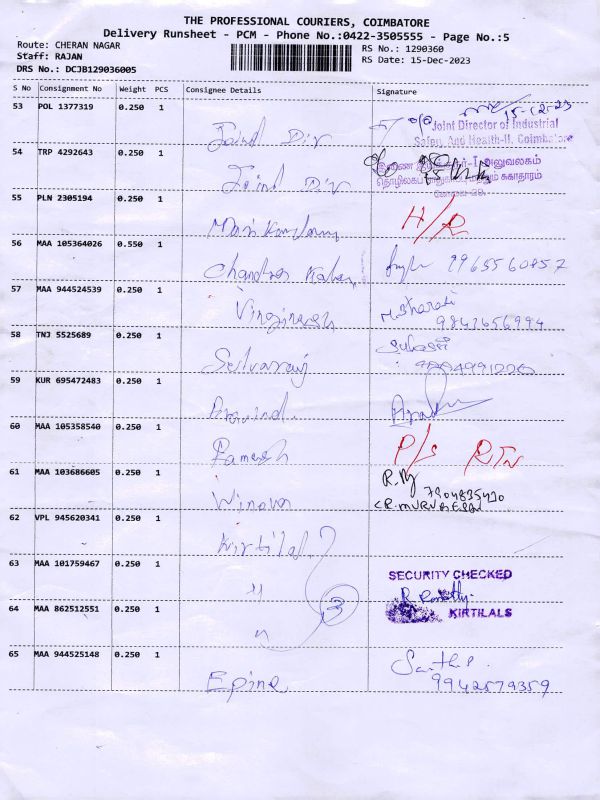 THE PROFESSIONAL COURIERS, COIMBATORE
Delivery Runsheet - PCM - Phone No.:0422-3505555 - Page No.:5
Route: CHERAN NAGAR
Staff: RAJAN
DRS No.: DCJB129036005
RS No.: 1290360
RS Date: 15-Dec-2023
S No Consignment No Weight PCS Consignee Details Signature
53 POL 1377319 0.250 1 Joind Dir
15-12-23
Joint Director of Industrial
Safety And Health-II, Coimbatore
54 TRP 4292643 0.250 1 Joind Dir
55 PLN 2305194 0.250 1 H/R
56 MAA 105364026 0.550 1 Chandra 9965560857
57 MAA 944524539 0.250 1 M. Bharati
9842656994
58 TNJ 5525689 0.250 1 Selvaraj
59 KUR 695472483 0.250 1 Aravind
60 MAA 105358540 0.250 1 Ramesh P/S RTN
61 MAA 103686605 0.250 1 Winova
7904835420
62 VPL 945620341 0.250 1 Kirtilal
63 MAA 101759467 0.250 1 "
SECURITY CHECKED
KIRTILALS
64 MAA 862512551 0.250 1 " 3
65 MAA 944525148 0.250 1 Epine
9942579359